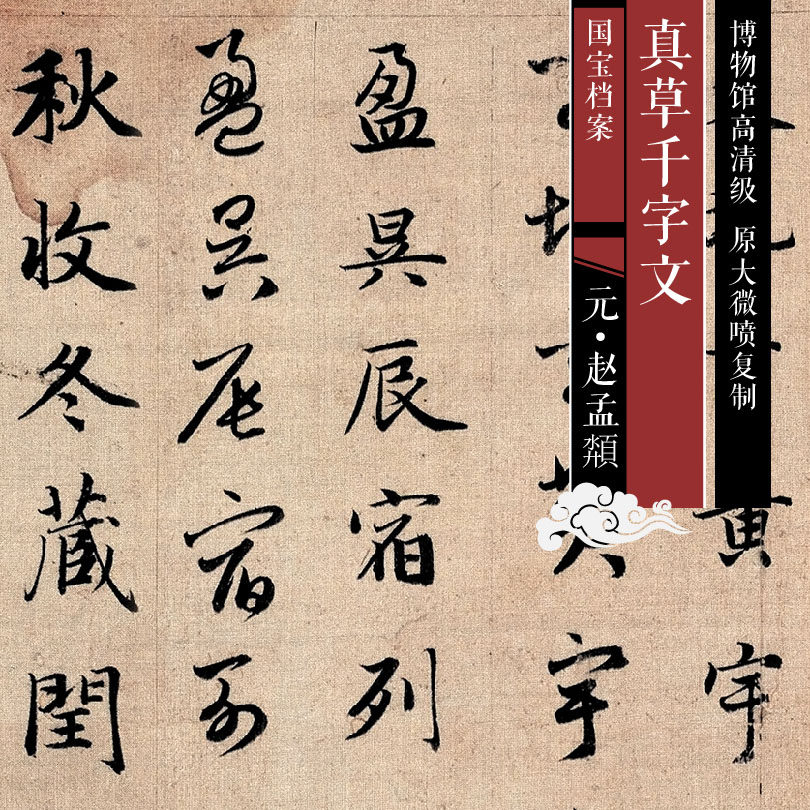 博物馆高清级 原大微喷复制
真草千字文
国宝档案
元·赵孟頫
黄宇
宇
盈昃辰宿列
盈昃辰宿列
秋收冬藏閏